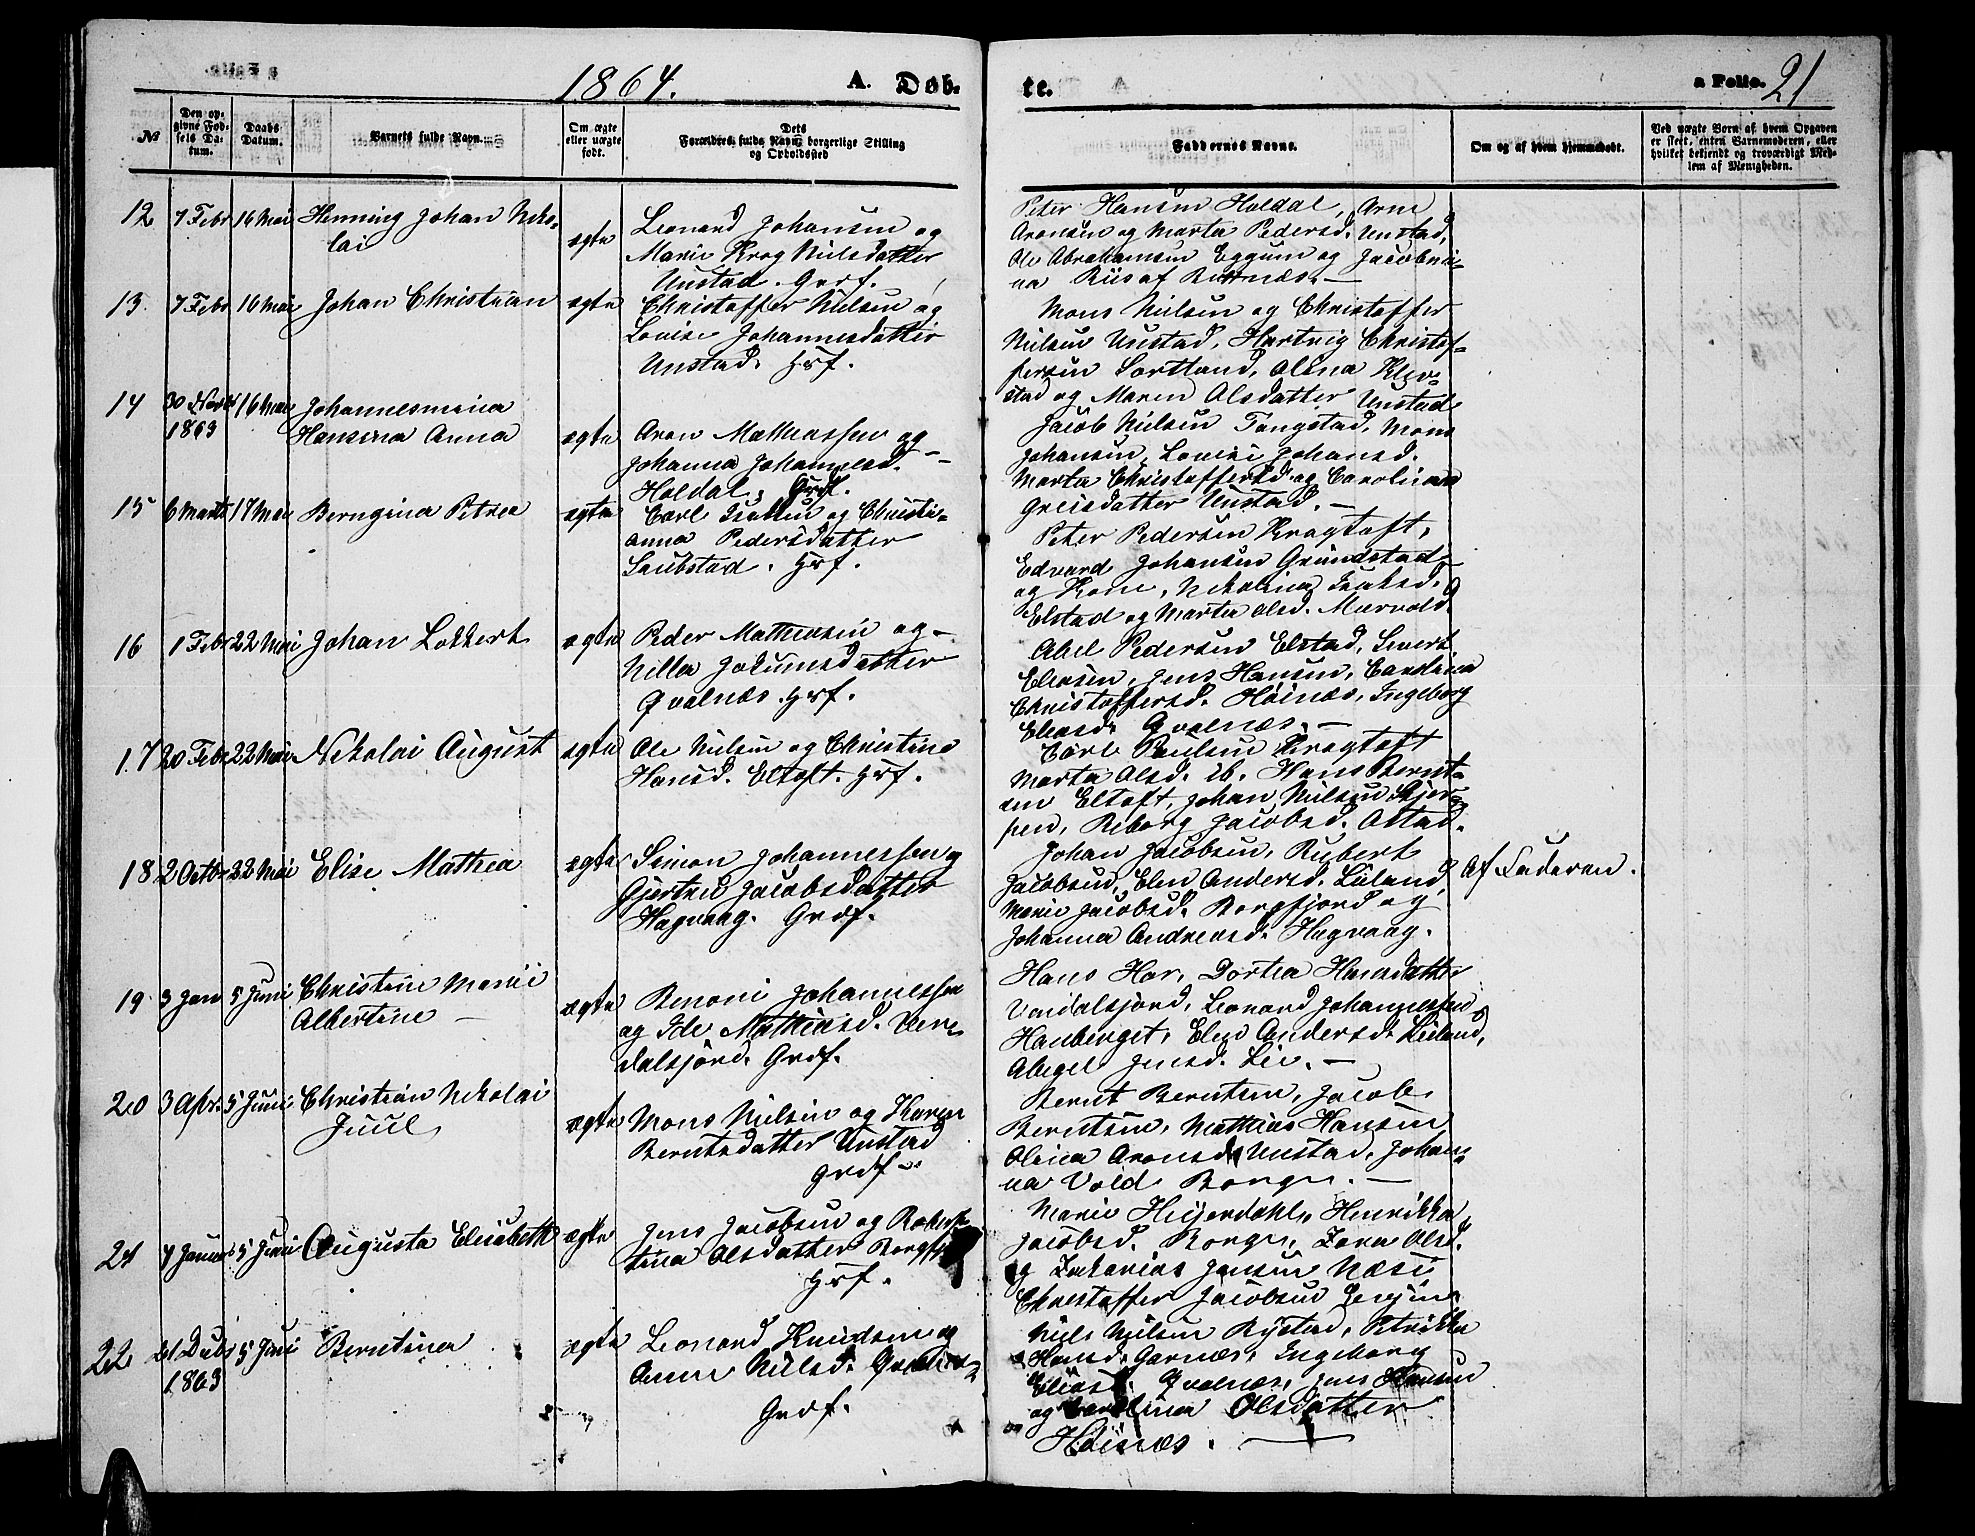 1864. A. Døb- te. a Folio. 21
№
Den opgivne Fødsels Datum.
Daabs Datum.
Barnets fulde Navn.
Om ægte eller uægte født.
Dets Forældres fulde Navn borgerlige Stilling og Opholdssted
Faddernes Navne.
Om og af hvem hjemmedøbt.
Ved uægte Børn af hvem Opgaven er skeet, enten Barnemoderen, eller hvilket bekjendt og troværdigt Medlem af Menigheden.
12 7 Febr 16 Mai Henning Johan Niko-
lai
ægte
Leonard Johansen og
Marie Krog Nilsdatter
Unstad. Grdf.
Peter Hansen Holdal, Arne
Aronsen og Marta Pedersd. Unstad,
Ole Abrahamsen Eggum og Jacobmi-
na Riis af
13. 7 Febr 16 Mai Johan Christian ægte
Christoffer Nilsen og
Lovise Johannesdatter
Unstad. Hrf.
Mons Nilsen og Christoffer
Nilsen Unstad, Hartvig Christof-
fersen Sortland, Olina Klev-
stad og Maren Olsdatter Unstad
14 30 Novbr 16 Mai Johannesmina
1863 Hansena Anna ægte
Aron Mathiassen og
Johanna Johannesd.
Holdal, Grdf.
Jacob Nilsen Tangstad, Mons
Johansen, Lovise Johansd.
Marta Christoffersd. og Caroline
Greisdatter Unstad.
15 6 Marts 17 Mai Berngina Petrea ægte
Carl Isaksen og Christi-
anna Pedersdatter
Saubstad. Hrf.
Peter Pedersen Kragtoft,
Edvard Johansen Grundstad
og Kone, Nikolina Isaksd.
Elstad og Marta Olsd. Mærvold.
16 1 Febr 22 Mai Johan Lokkert ægte
Peder Mathiasen og
Nilla Jokumsdatter
Qvalnæs. Hrf.
Abel Pedersen Elstad, Sivert
Eliasen, Jens Hansen, Carolina
Christoffersd. Höinæs, Ingeborg
Eliasd. Qvalnæs.
17 20 Febr 22 Mai Nikolai August ægte
Ole Nilsen og Christine
Hansd. Eltoft. Hrf.
Carl Paulsen Kragtoft
Marta Olsd. ib. Hans Bernt-
sen Eltoft, Johan Nilsen Skjer-
pen, Reborg Jacobsd. Alstad.
18 2 Octbr 22 Mai Elise Mathea ægte
Simon Johannessen og
Gjertrud Jacobsdatter
Hagvaag. Grdf.
Johan Jacobsen, Rubert
Jacobsen, Elen Andersd. Liland,
Marie Jacobsd. Borgfjord og
Johanna Andreasd. Hagvaag.
Af Faderen.
19 3 Jan 5 Juni Christine Marie
Albertine ægte
Benoni Johannessen
og Ide Mathiasd. Ven-
dalsjord. Grdf.
Hans Har, Dortea Hansdatter
Vendalsjord, Leonard Johannessen
Hauberget, Elen Andersd. Liland,
Abigel Jensd. Lie.
20 3 Apr. 5 Juni Christian Nikolai
Juul ægte
Mons Nilsen og Karen
Berntsdatter Unstad
Grdf
Bernt Berntsen, Jacob
Berntsen, Mathias Hansen
Olina Aronsd. Unstad, Johan-
na Vold Borge.
21 7 Januar 5 Juni Augusta Elisabeth ægte
Jens Jacobsen og Robert-
tina Olsdatter
Hrf.
Marie Heyerdahl, Henrikka
Jacobsd. Borge, Lava Olsd.
og Zakarias Jensen Næsie
Christoffer Jacobsen
22 21 Debr 5 Juni Berntina ægte
1863
Leonard Knudsen og
Anne Nilsd.
Grdf.
Niels Nilsen Rystad, Petrikka
Hansd. Garnæs, Ingeborg
Eliasd. Qvalnæs, Jens Hansen
og Carolina Olsdatter
Höinæs.